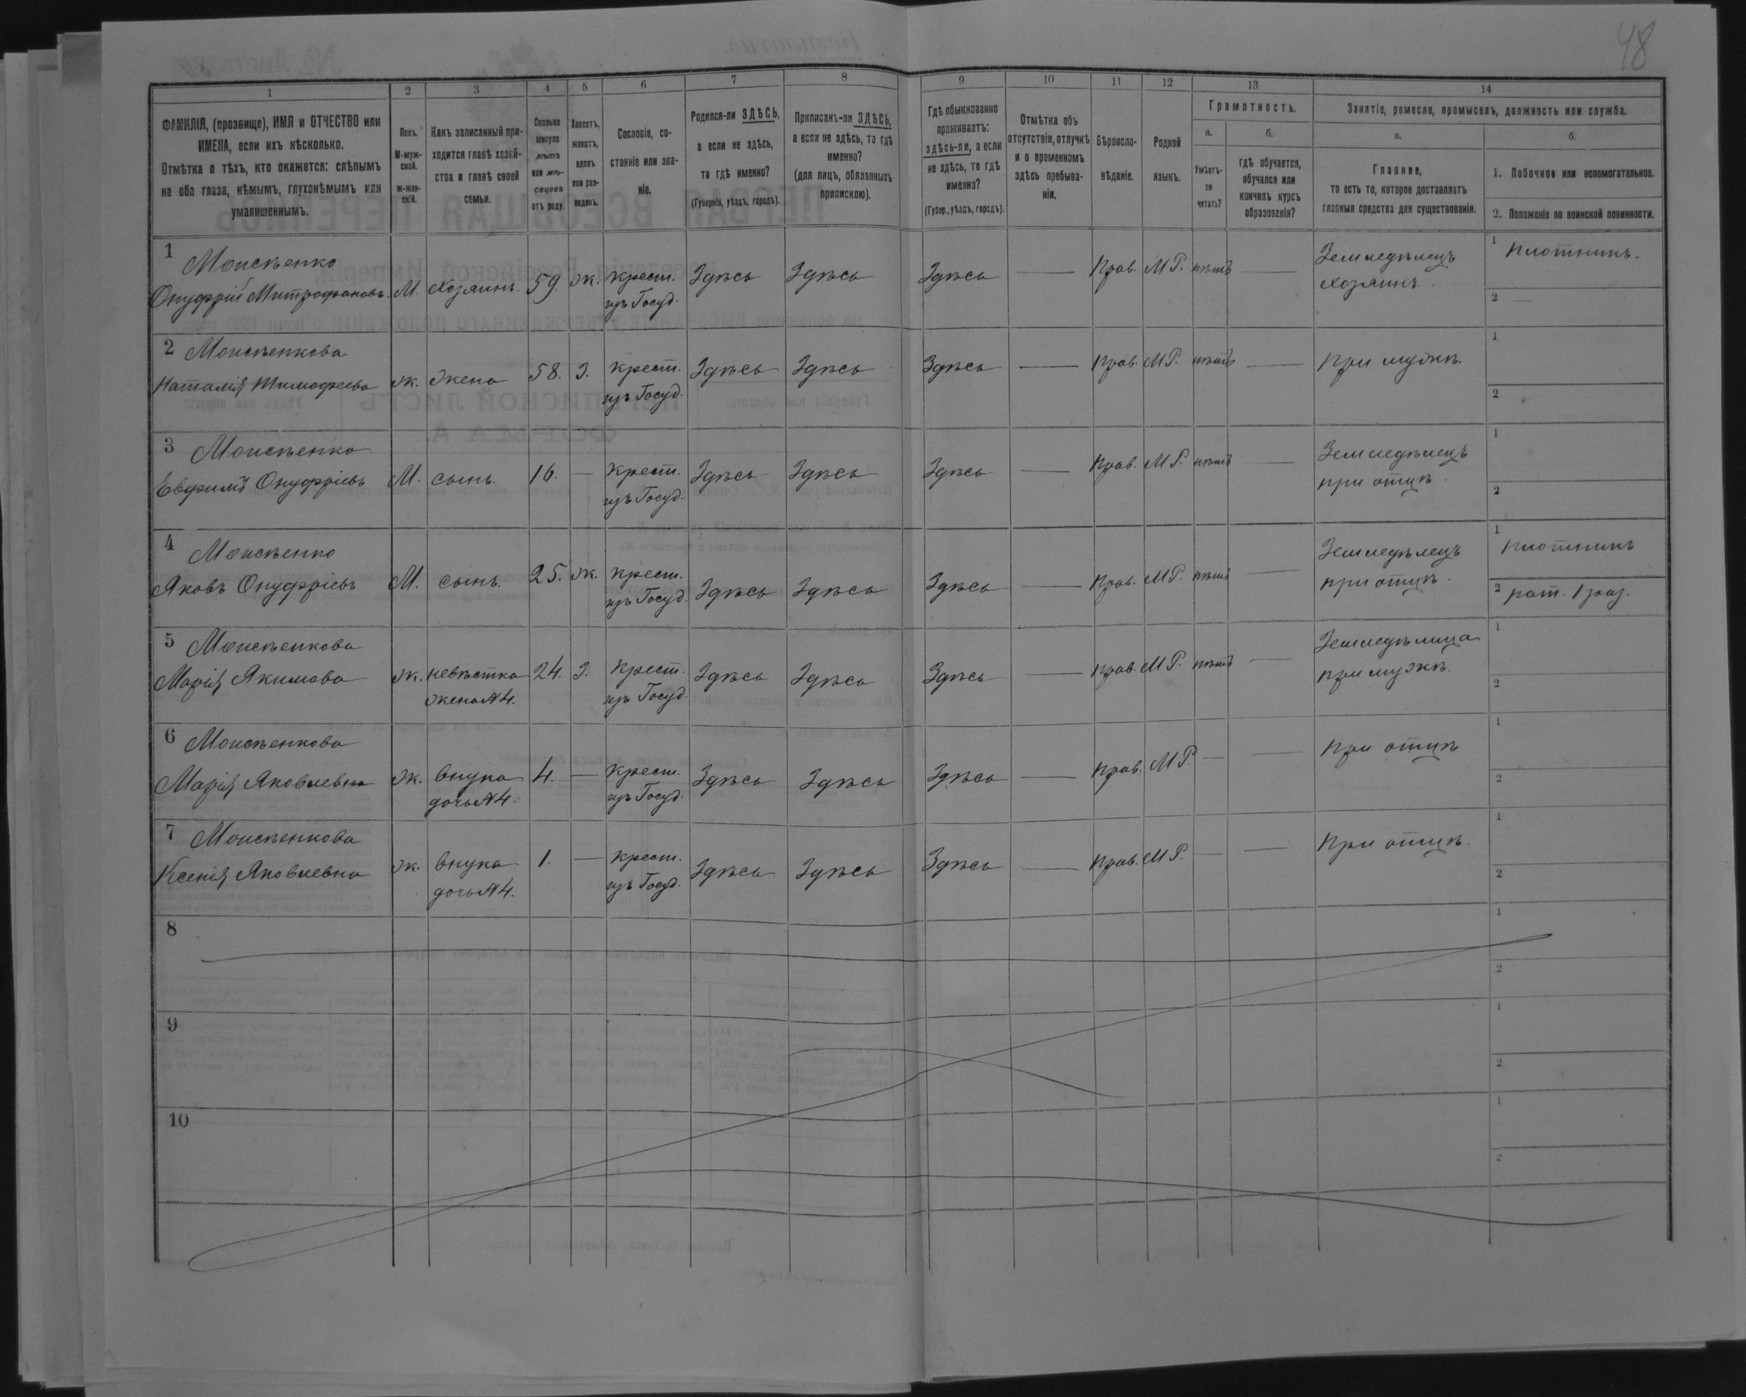 48
1 2 3 4 5 6 7 8 9 10 11 12 13 14
ФАМИЛІЯ, (прозвище), ИМЯ и ОТЧЕСТВО или ИМЕНА, если ихъ нѣсколько.
Отмѣтка о тѣхъ, кто окажется: слѣпымъ на оба глаза, нѣмымъ, глухонѣмымъ или умалишеннымъ.
Полъ. М-мужской. Ж-женскій.
Какъ записанный приходится главѣ хозяйства и главѣ своей семьи.
Сколько минуло лѣтъ или мѣсяцевъ отъ роду.
Холостъ, женатъ, вдовъ или разведенъ.
Сословіе, состояніе или званіе.
Родился-ли ЗДѢСЬ, а если не здѣсь, то гдѣ именно? (Губернія, уѣздъ, городъ).
Приписанъ-ли ЗДѢСЬ, а если не здѣсь, то гдѣ именно? (для лицъ, обязанныхъ припискою).
Гдѣ обыкновенно проживаетъ: здѣсь-ли, а если не здѣсь, то гдѣ именно? (Губер., уѣздъ, городъ).
Отмѣтка объ отсутствіи, отлучкѣ и о временномъ здѣсь пребываніи.
Вѣроисповѣданіе.
Родной языкъ.
Грамотность.
а. Умѣетъ-ли читать?
б. Гдѣ обучается, обучался или кончилъ курсъ образованія?
Занятіе, ремесло, промыселъ, должность или служба.
а. Главное, то есть то, которое доставляетъ главныя средства для существованія.
б.
1. Побочное или вспомогательное.
2. Положеніе по воинской повинности.
1 Моисѣенко
Онуфрій Митрофановъ М. хозяинъ. 59. ж. крест. изъ Госуд. Здѣсь Здѣсь Здѣсь — Прав. М.Р. нѣтъ — Земледѣлецъ хозяинъ. 1 Плотникъ.
2 —
2 Моисѣенкова
Наталія Тимофеева ж. жена 58. З. крест. изъ Госуд. Здѣсь Здѣсь Здѣсь — Прав. М.Р. нѣтъ — При мужѣ. 1
2
3 Моисѣенко
Евфимъ Онуфріевъ М. сынъ. 16. — крест. изъ Госуд. Здѣсь Здѣсь Здѣсь — Прав. М.Р. нѣтъ — Земледѣлецъ при отцѣ. 1
2
4 Моисѣенко
Яковъ Онуфріевъ М. сынъ. 25. ж. крест. изъ Госуд. Здѣсь Здѣсь Здѣсь — Прав. М.Р. нѣтъ — Земледѣлецъ при отцѣ. 1 Плотникъ
2 рат. 1 раз.
5 Моисѣенкова
Марія Якимова ж. невѣстка жена №4. 24. З. крест. изъ Госуд. Здѣсь Здѣсь Здѣсь — Прав. М.Р. нѣтъ — Земледѣлица при мужѣ. 1
2
6 Моисѣенкова
Марія Яковлевна ж. внука дочь №4. 4. — крест. изъ Госуд. Здѣсь Здѣсь Здѣсь — Прав. М.Р. — — При отцѣ 1
2
7 Моисѣенкова
Ксенія Яковлевна ж. внука дочь №4. 1. — крест. изъ Госуд. Здѣсь Здѣсь Здѣсь — Прав. М.Р. — — При отцѣ. 1
2
8 1
2
9 1
2
10 1
2